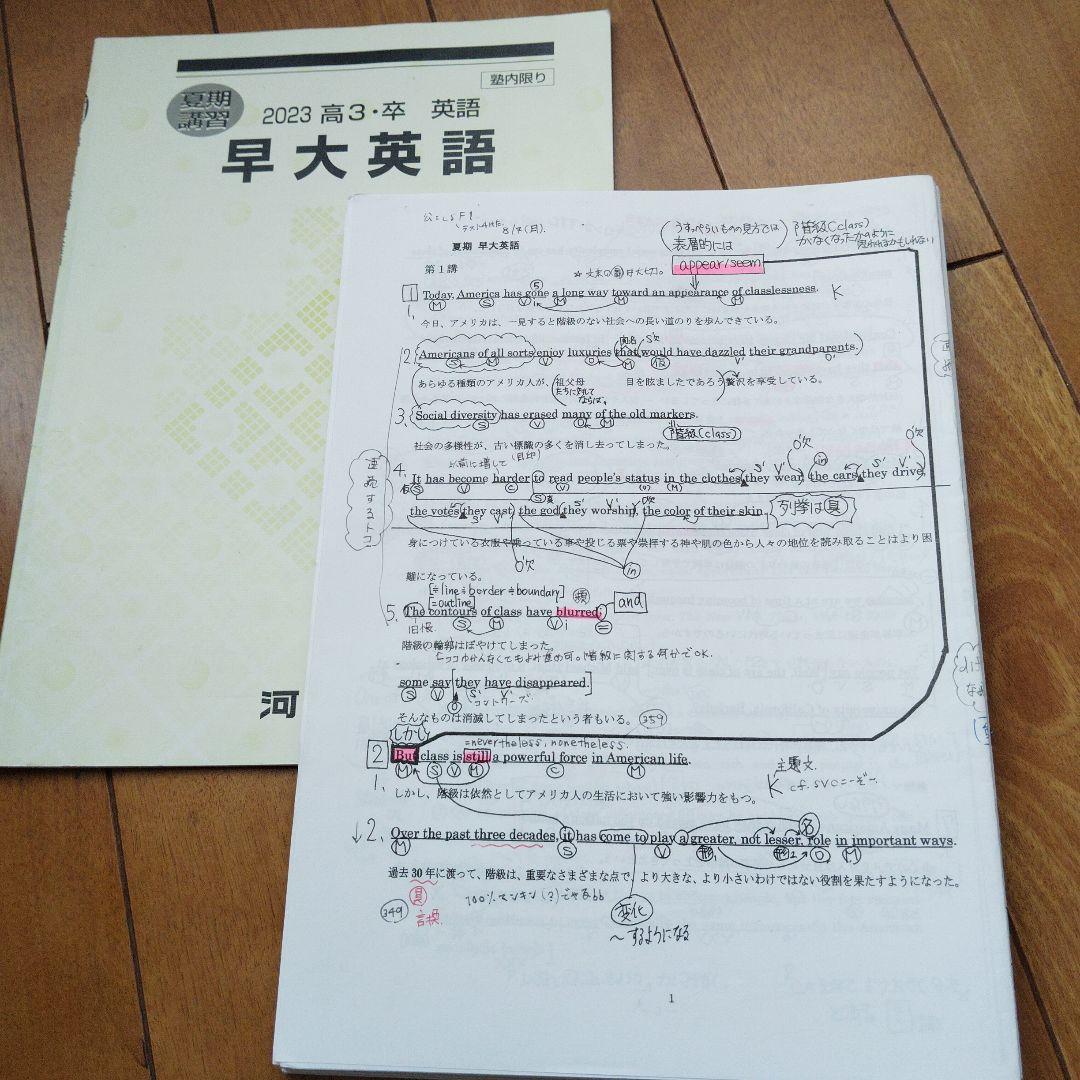 塾内限り
夏期
講習
2023 高3・卒 英語
早大英語
河
8/7(月).
夏期 早大英語
(うすっぺらいものの見方では)
表層的には
階級(class)
appear/seem
第1講
1 Today, America has gone a long way toward an appearance of classlessness. K
今日、アメリカは、一見すると階級のない社会への長い道のりを歩んできている。
2. Americans of all sorts enjoy luxuries that would have dazzled their grandparents.
あらゆる種類のアメリカ人が、祖父母 目を眩ましたであろう贅沢を享受している。
3. Social diversity has erased many of the old markers.
階級(class)
社会の多様性が、古い標識の多くを消し去ってしまった。
4. It has become harder to read people's status in the clothes they wear, the cars they drive,
the votes they cast, the god they worship, the color of their skin.
列挙は具
身につけている衣服や乗っている車や投じる票や崇拝する神や肌の色から人々の地位を読み取ることはより困
難になっている。
[≒line≒border≒boundary]
[=outline]
5. The contours of class have blurred; and
階級の輪郭はぼやけてしまった。
some say they have disappeared.
コントゥーズ
そんなものは消滅してしまったという者もいる。 359
しかし
=nevertheless, nonetheless.
2 But class is still a powerful force in American life.
主題文.
1. しかし、階級は依然としてアメリカ人の生活において強い影響力をもつ。
2. Over the past three decades, it has come to play a greater, not lesser, role in important ways.
過去30年に渡って、階級は、重要なさまざまな点で、より大きな、より小さいわけではない役割を果たすようになった。
349
変化
～するようになる
1